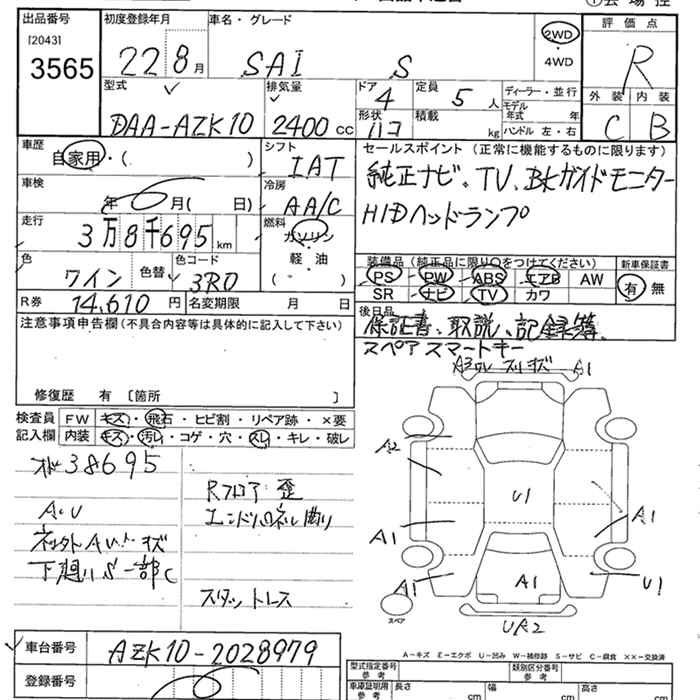 出品番号
[2043]
3565
初度登録年月
22 8月
車名・グレード
SAI S
2WD
・
4WD
評価点
R
外装 内装
C B
型式
DAA-AZK10
排気量
2400 CC
ドア
4
形状
ハコ
定員
5人
積載
kg
ディーラー・並行
モデル
年式 年
ハンドル 左・右
車歴
自家用・( )
シフト
IAT
車検
年 月( 日)
冷房
AA/C
走行
3万8千695km
燃料
ガソリン
軽・油
( )
色
ワイン
色替
色コード
3R0
R券 14,610 円
名変期限 月 日
セールスポイント (正常に機能するものに限ります)
純正ナビ。TV、Bkガイドモニター
HIDヘッドランプ
装備品 (純正品に限り○をつけてください)
PS PW ABS エアB AW
SR ナビ TV カワ
新車保証書
有 無
後日品
保証書、取説、記録簿
スペアスマートキー
注意事項申告欄(不具合内容等は具体的に記入して下さい)
修復歴 有 〔箇所 〕
検査員
記入欄
FW キズ・飛石・ヒビ割・リペア跡・×要
内装 キズ・汚レ・コゲ・穴・スレ・キレ・破レ
38695
A・U
下廻りS一部C
Rフロア歪
エンドパネル曲り
スタットレス
A3 ワレ スリキズ A1
A2
U1
A1
A1
A1
A1
U1
スペア
UR2
A-キズ E-エクボ U-凹み W-補修跡 S-サビ C-腐食 ××-交換済
車台番号
AZK10-2028979
登録番号
型式指定番号
参考
類別区分番号
参考
車庫証明用
参考
長さ cm
幅 cm
高さ cm